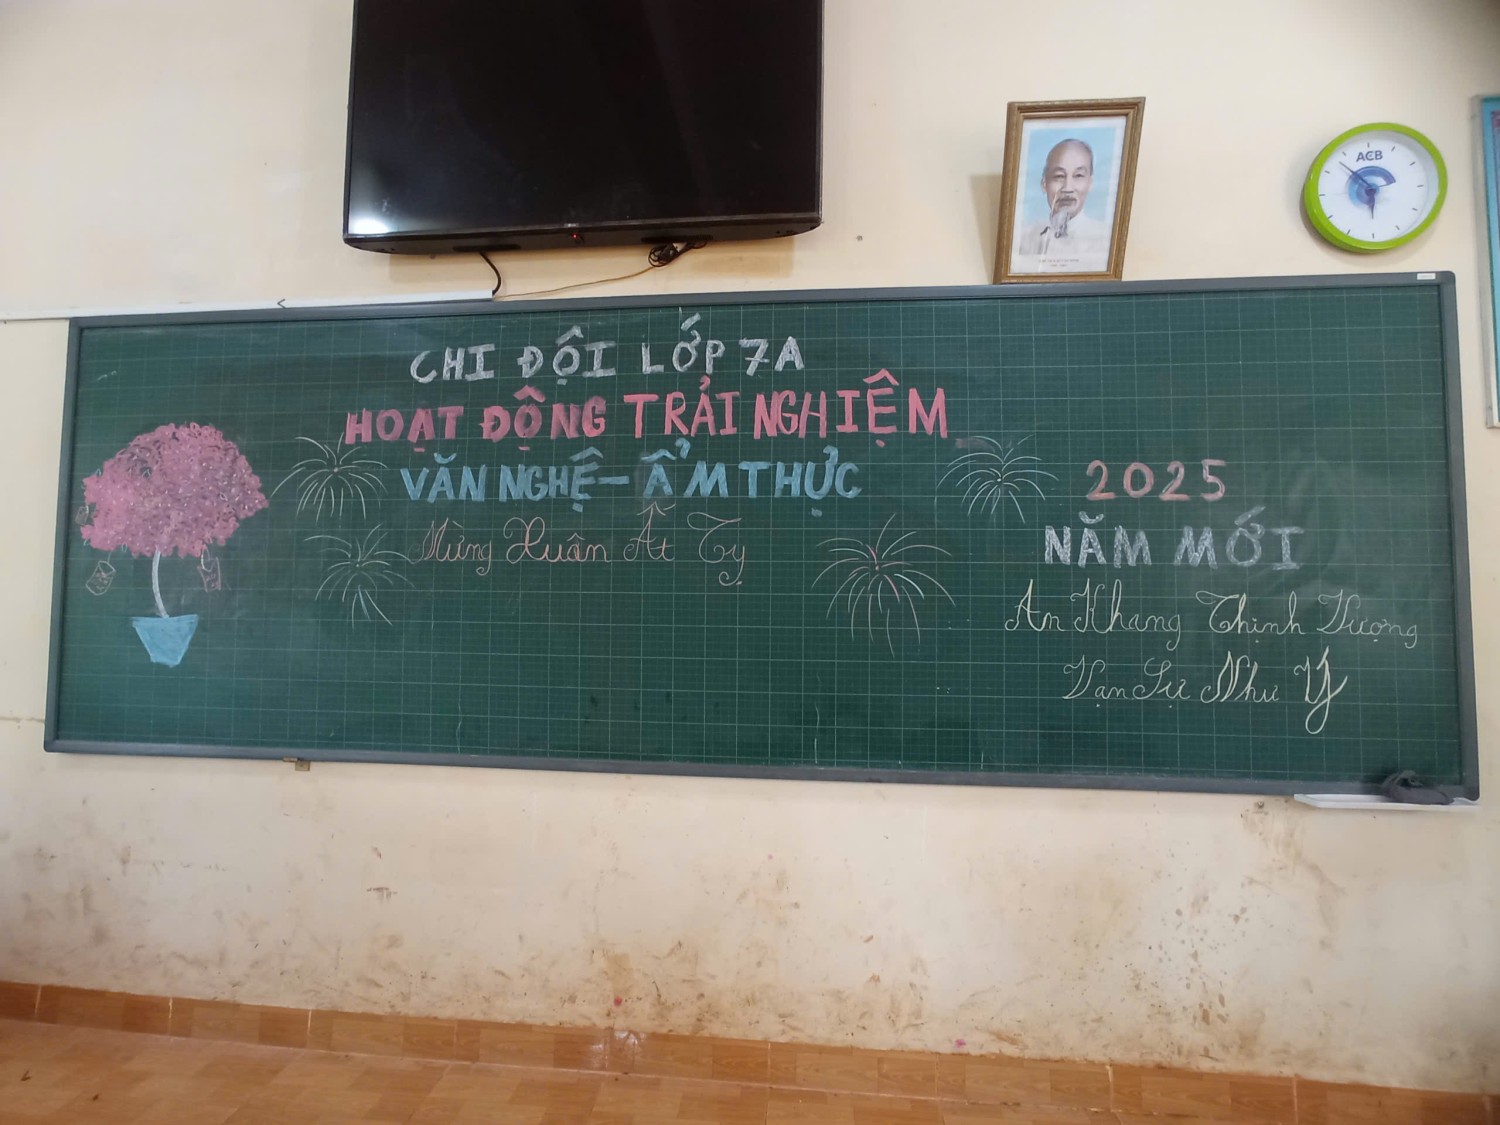 ACB
CHI ĐỘI LỚP 7A
HOẠT ĐỘNG TRẢI NGHIỆM
VĂN NGHỆ - ẨM THỰC
Mừng Xuân Ất Tỵ
2025
NĂM MỚI
An Khang Thịnh Vượng
Vạn Sự Như Ý